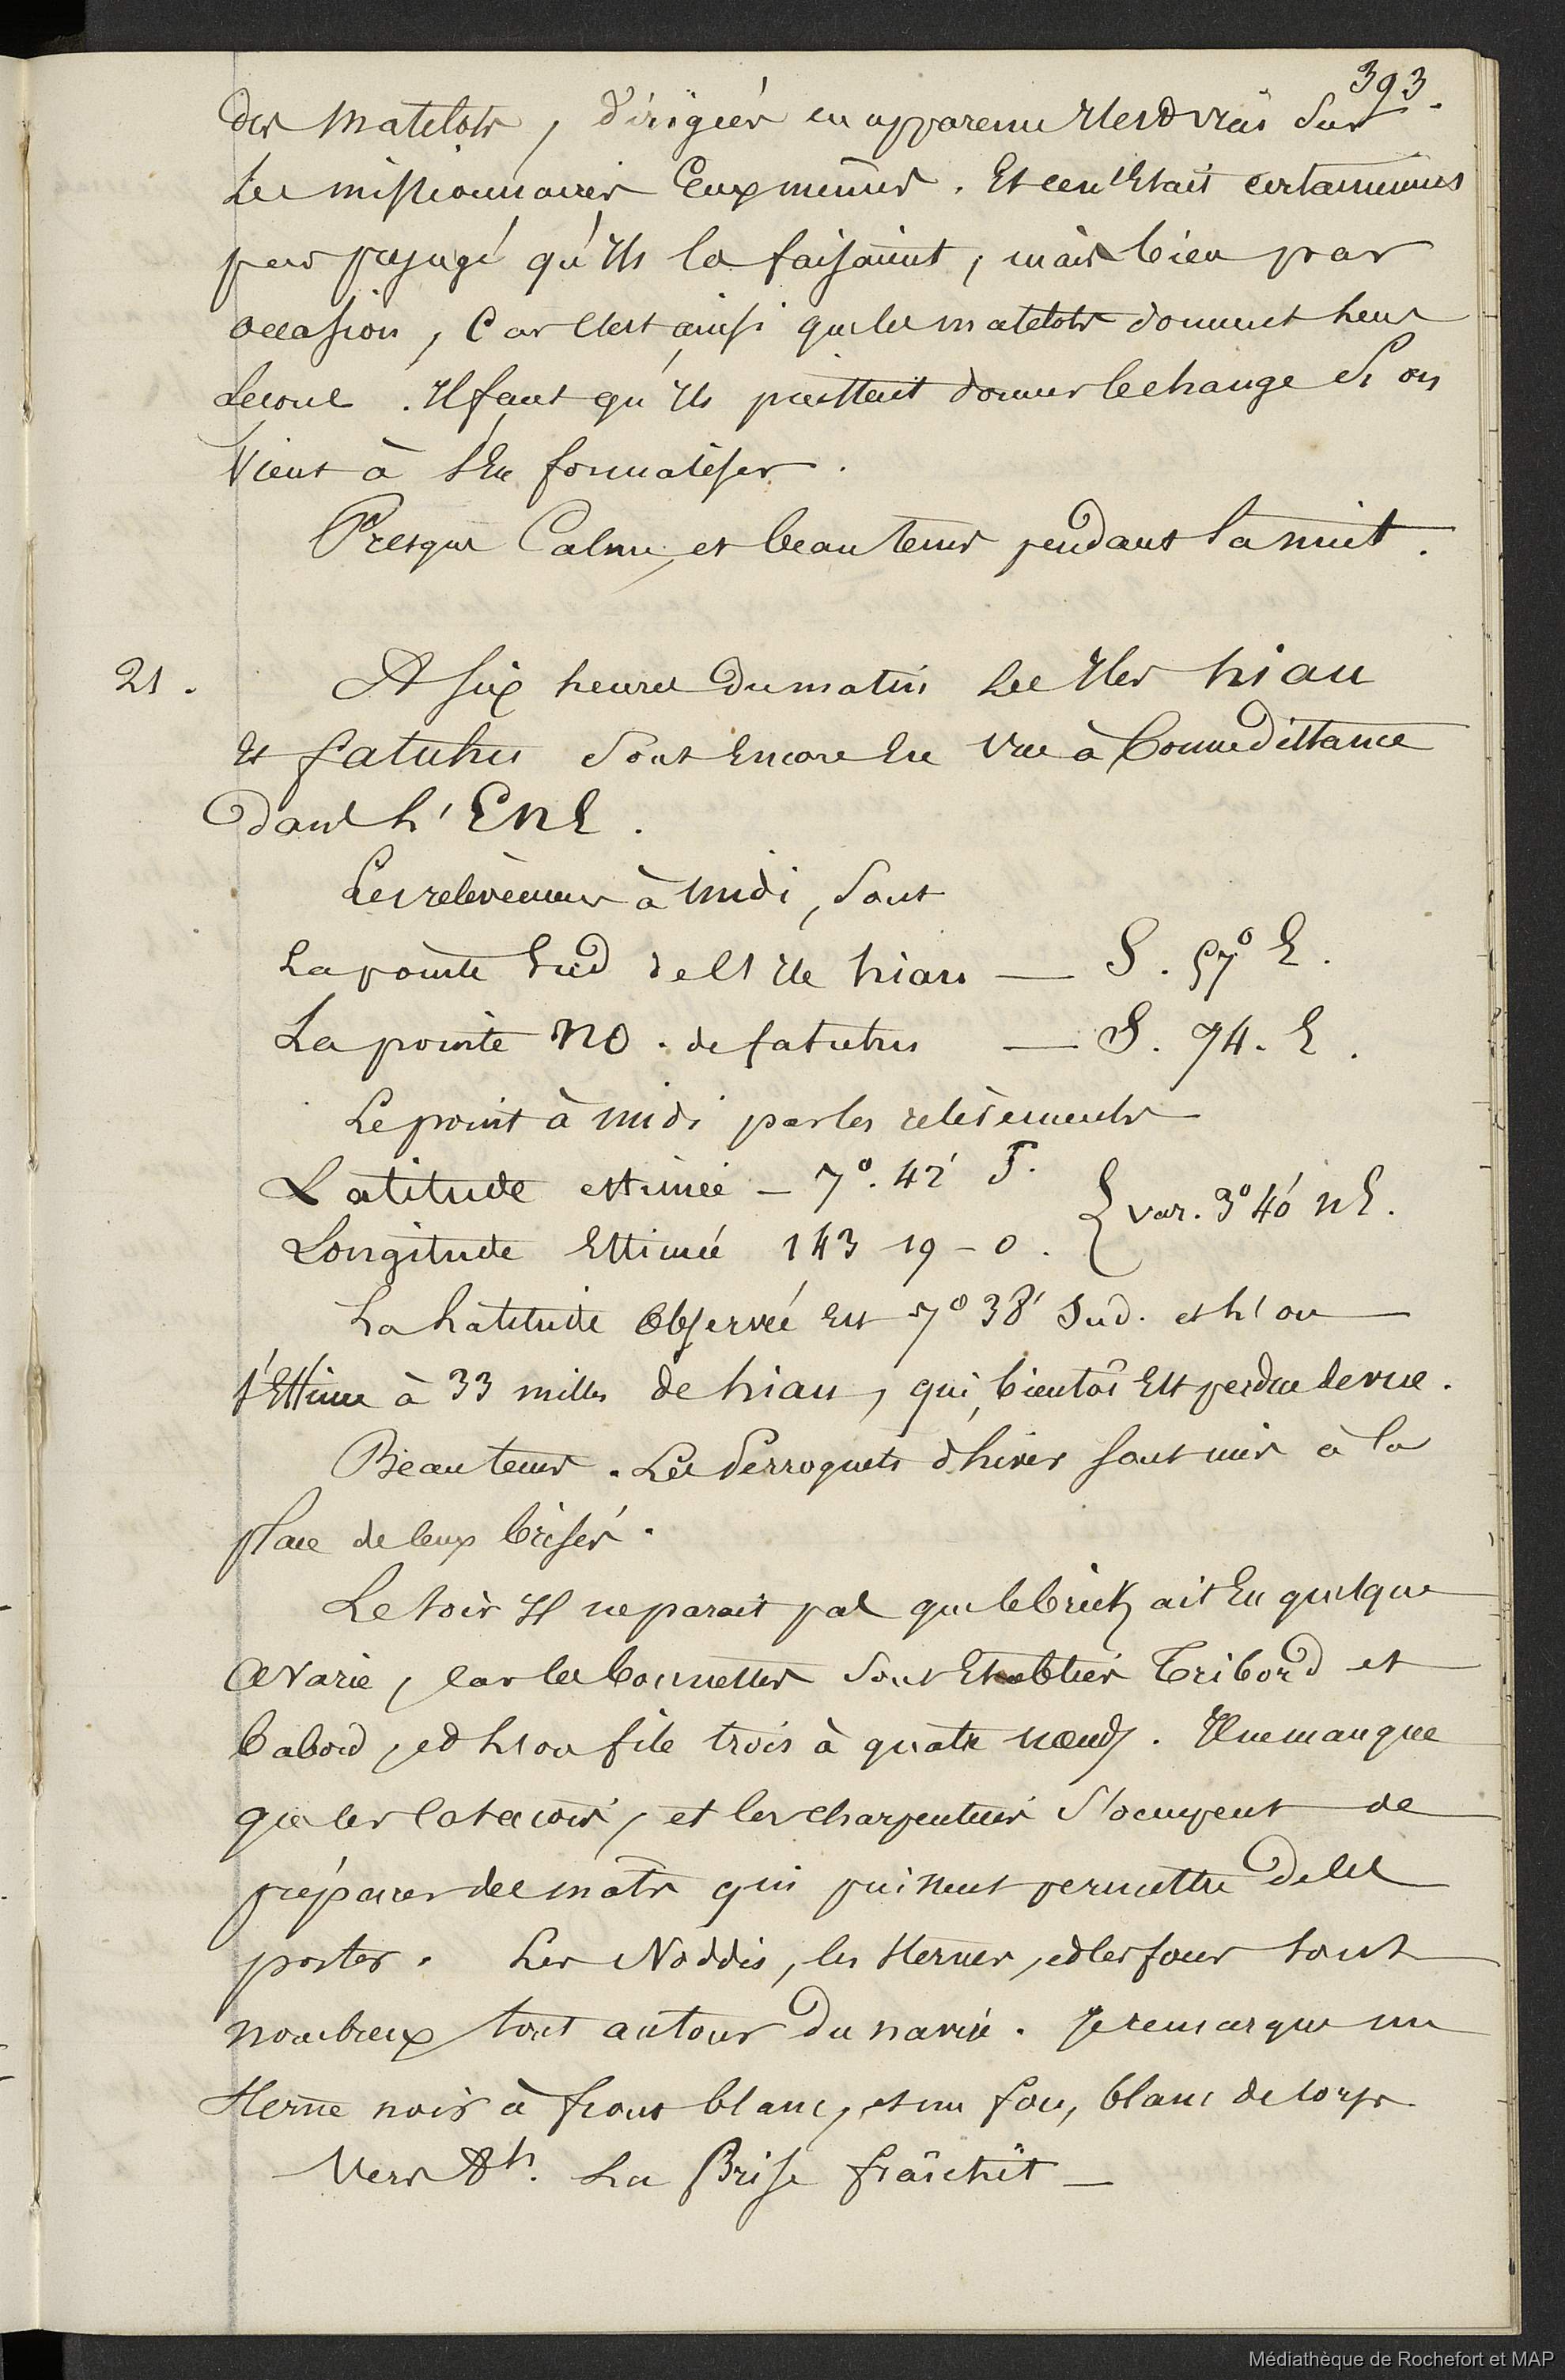 393.
des matelots, dirigées en apparence vers
Les missionnaires Eux mêmes. Et ce n'Etait certainement
pas préjugé qu'Ils la faisaient, mais bien par
occasion, Car c'est ainsi que les matelots donnent leur
Leçons. Il faut qu'Ils puissent donner le change Si on
Vient à s'En formaliser.
Presque Calme, et beau tems pendant la nuit.
21. A six heures du matin Les Iles hiau
Et fatuhu Sont Encore En vue à bonne distance
dans L'ENE.
Les relèvemens à midi, Sont
La pointe Sud de l'Ile hiau — S. 57° E.
La pointe NO. de fatuhu — S. 74. E.
Le point à midi par les relèvements
Latitude estimée – 7°. 42' S.
Longitude Estimée 143 19 – O. { var. 3° 40' NE.
La Latitude Observée Est 7° 38' Sud. et L'on
s'Estime à 33 milles de hiau, qui, bientôt Est perdue de vue.
Beau tems. Les Perroquets d'hiver sont mis à la
place de ceux brisés.
Le soir Il ne parait pas que le brick ait Eu quelque
avarie, car les bonnettes Sont Etablies Tribord et
babord, et L'on file trois à quatre nœuds. Il ne manque
que les Catacois, et les charpentiers S'occupent de
préparer des mâts qui puissent permettre de les
porter. Les Noddis, les Sternes, et les fous sont
nombreux tout autour du navire. Je remarque une
Sterne noir à front blanc, et un fou, blanc de corps
Vers 8h. La Brise fraîchit —
Médiathèque de Rochefort et MAP